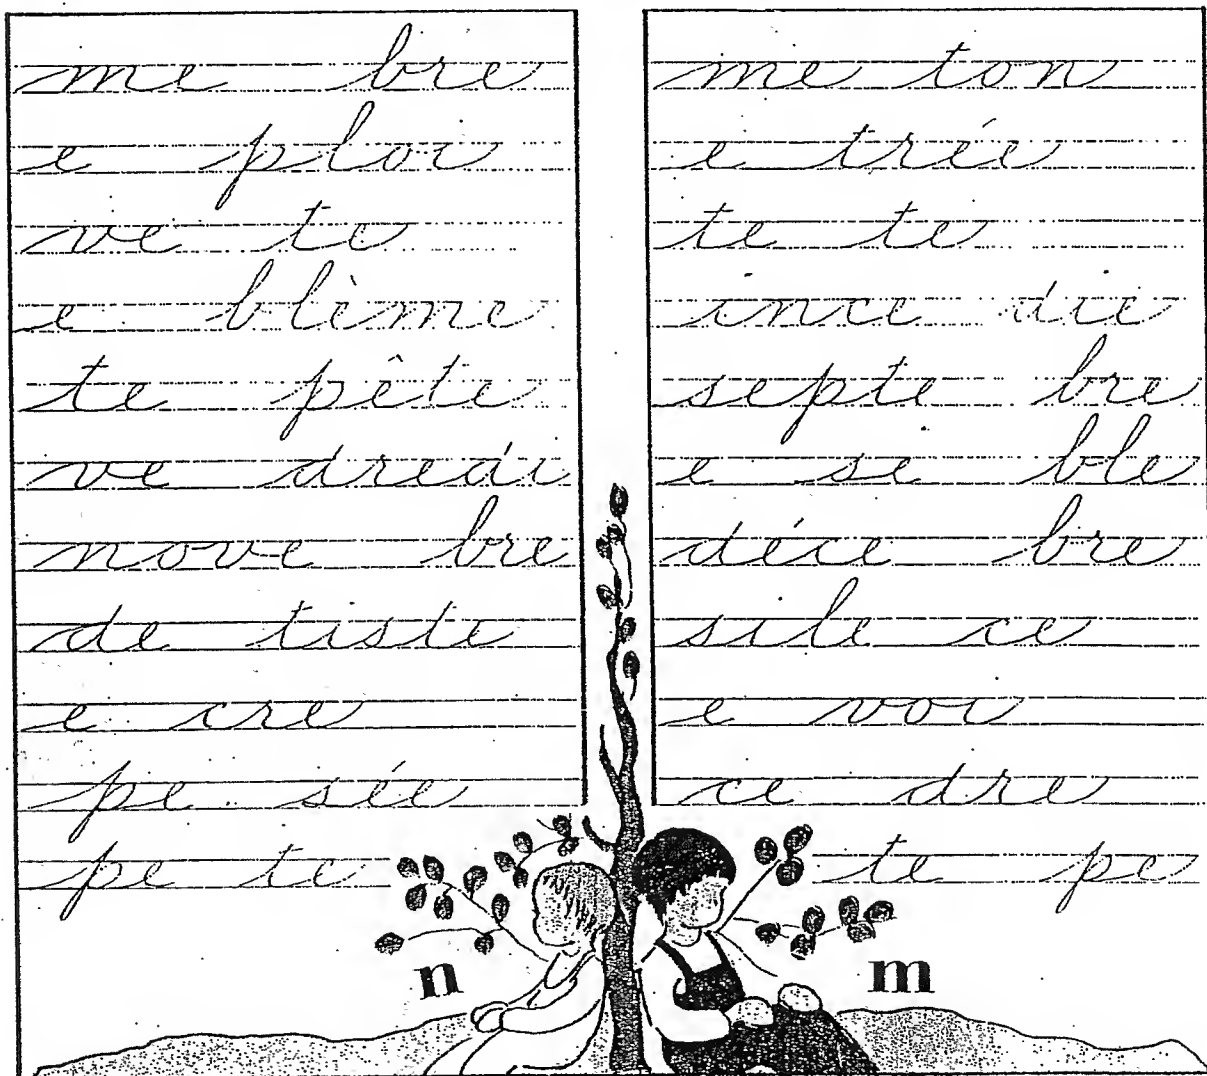 me bre
e ploi
ve te
e blème
te pête
ve dredi
nove bre
de tiste
e cre
pe sée
pe te
n
me ton
e trée
te te
ince die
septe bre
e se ble
déce bre
sile ce
e voi
ce dre
te pe
m